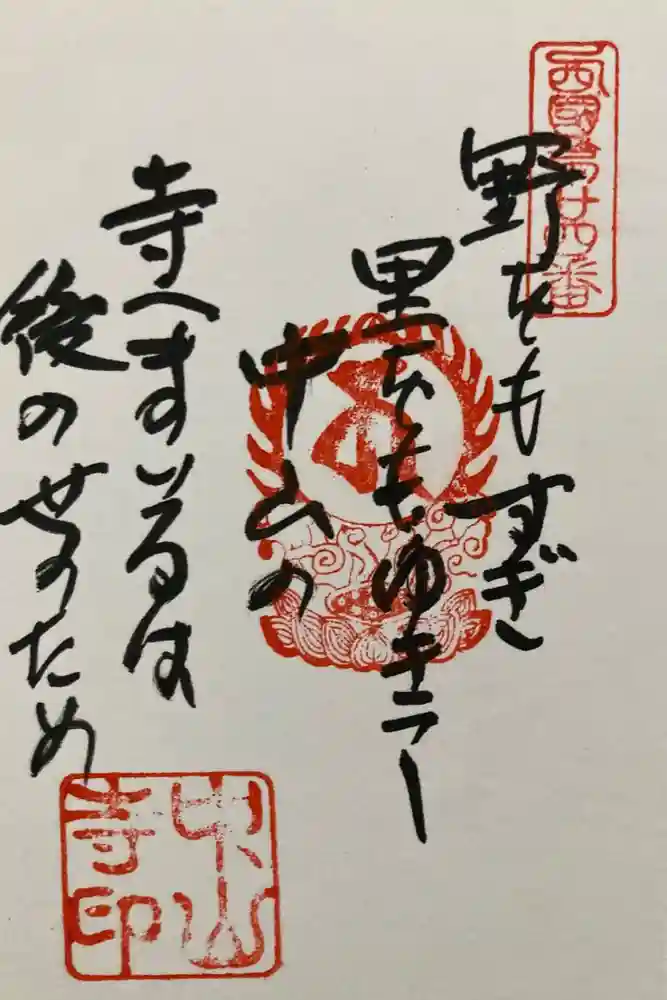 西國第廿四番
野をもすぎ
里をもゆきて
中山の
寺へまいるは
後の世のため
中山
寺印